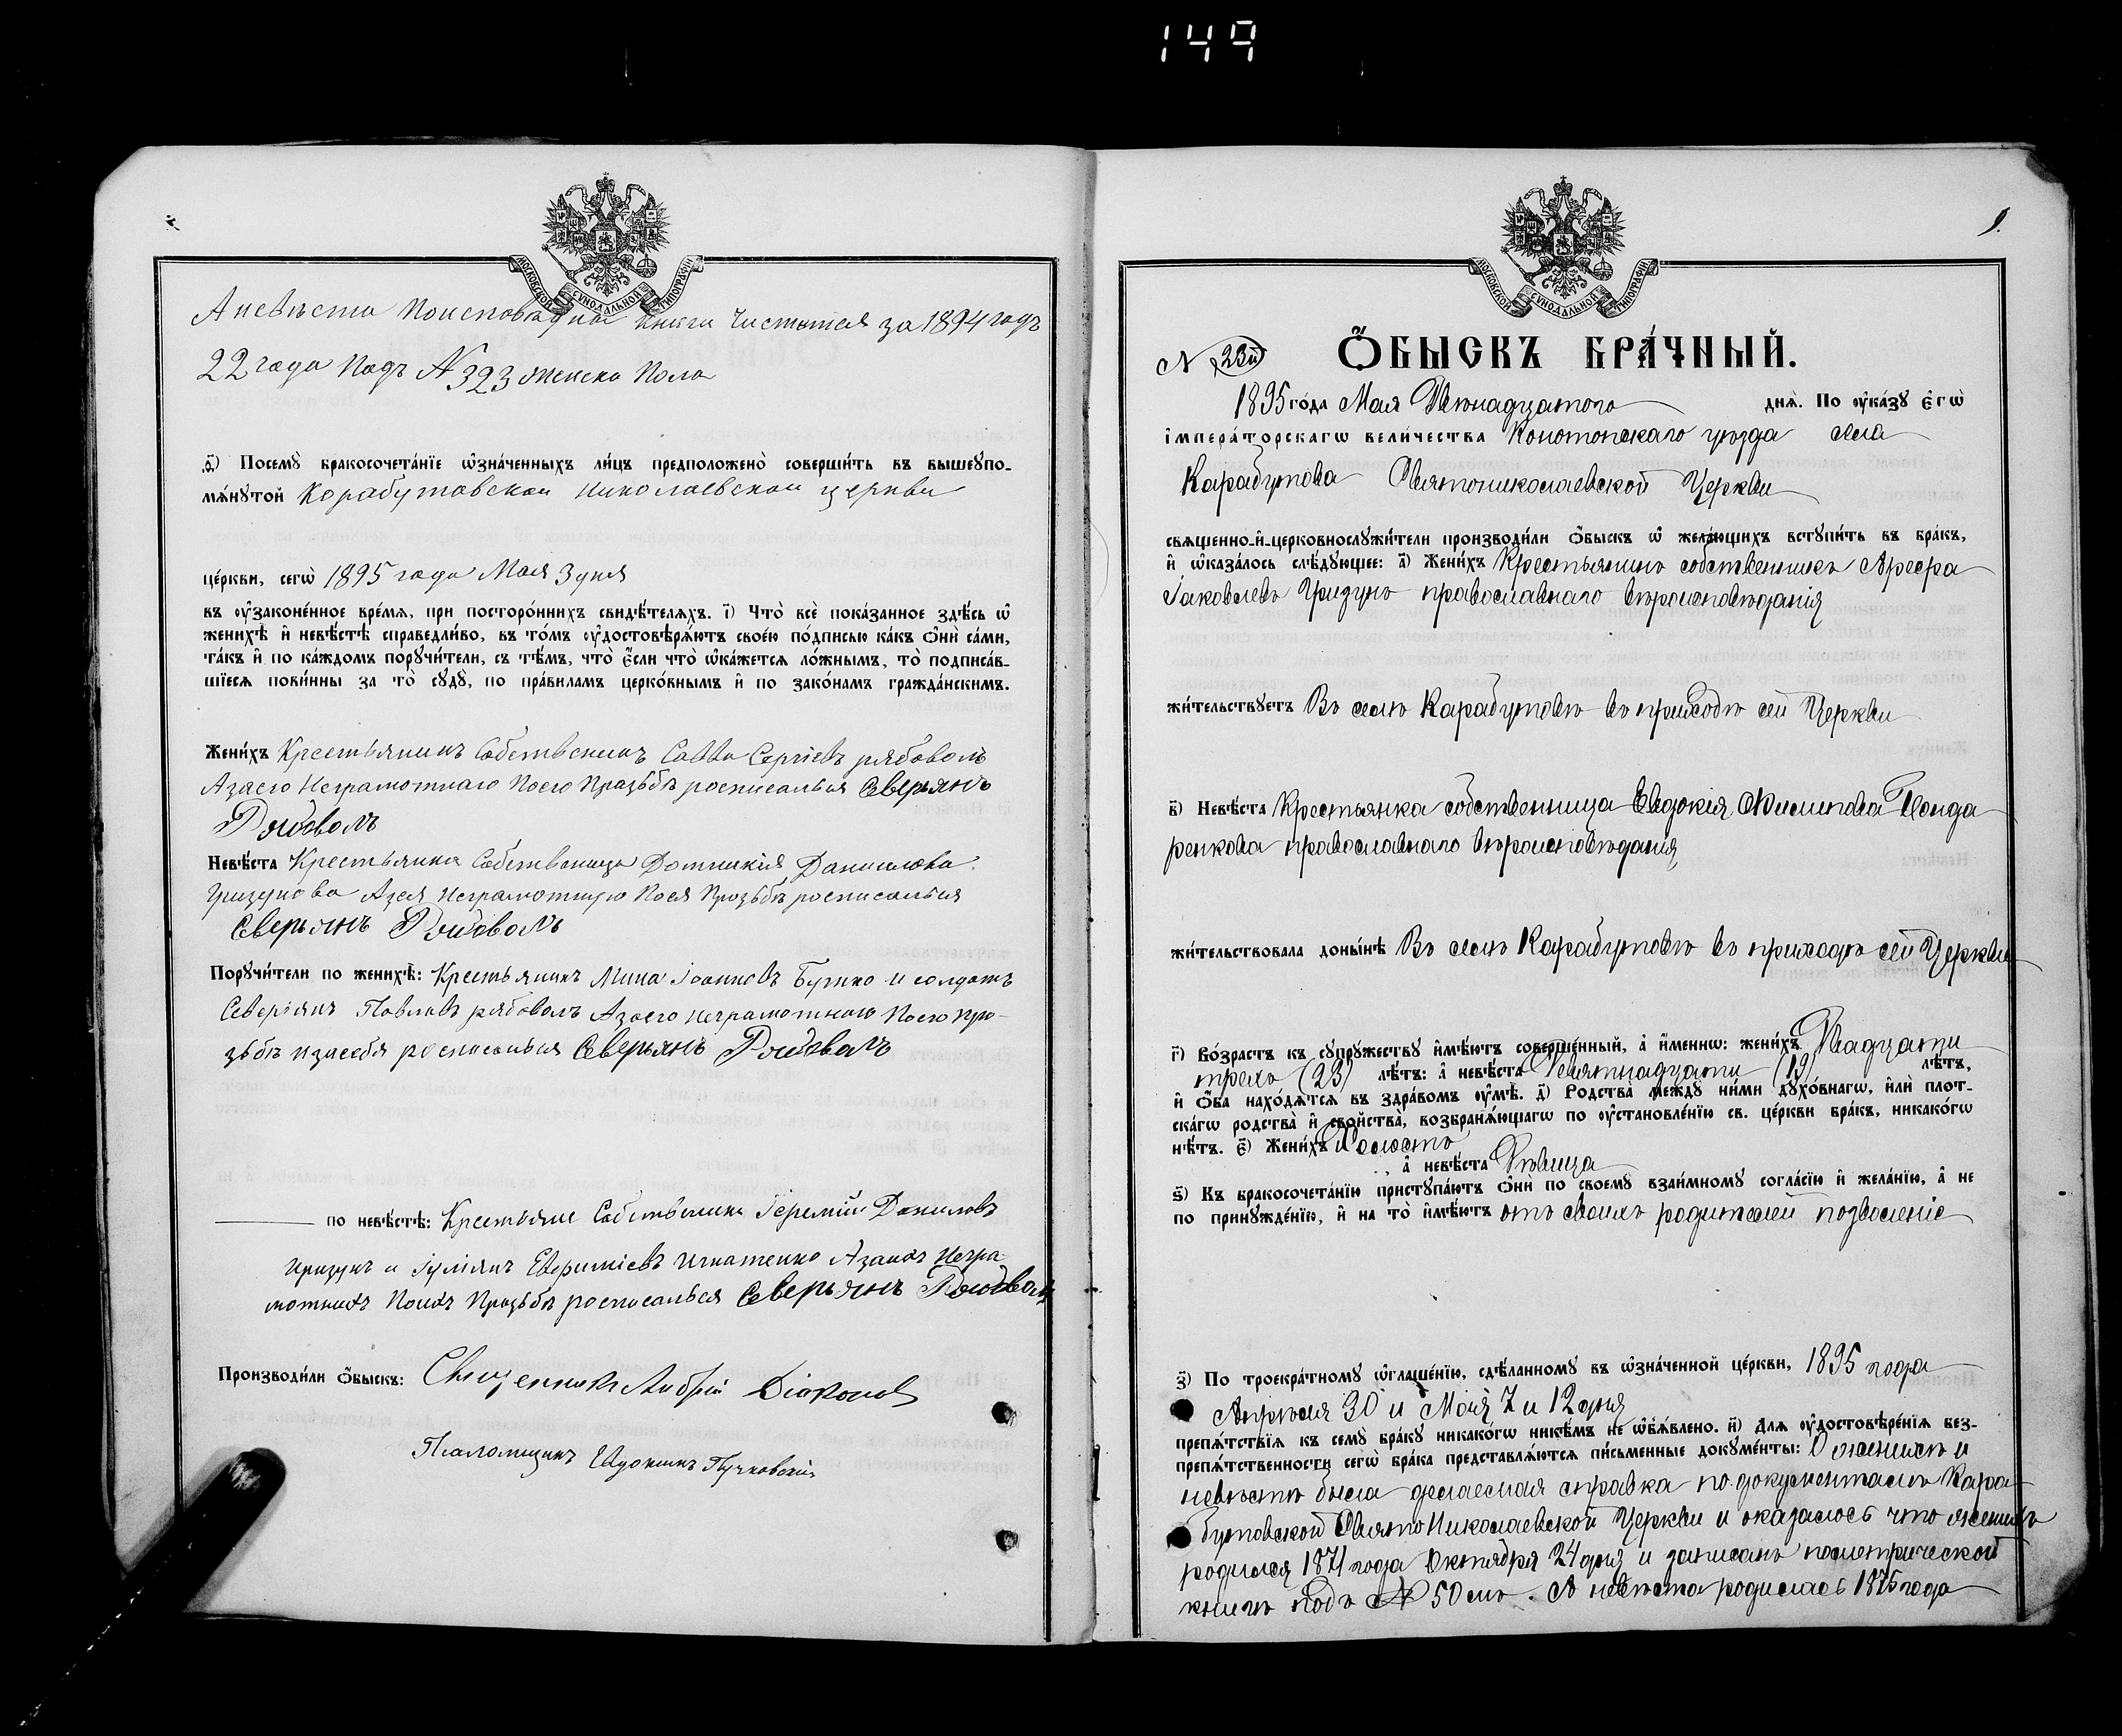 149
МОСКОВСКОЙ СУНОДАЛЬНОЙ ТИПОГРАФІИ
А невѣста Поисповѣдной книги Чистится за 1894 годъ
22 года Подъ № 323 женска Пола
Посемꙋ̀ бракосочета́нїе ѡ҆зна́ченныхъ ли́цъ предположено̀ соверши́ть въ вышеꙋпо-
мѧ́нꙋтой Корабутовской Николаевской церкви
це́ркви, сегѡ̀ 1895 года Мая 3 дня
въ ᲂу҆законе́нное вре́мѧ, при посторо́ннихъ свидѣ́телѧхъ. і҃) Что̀ всѐ пока́занное здѣ́сь ѡ҆
женихѣ̀ и҆ невѣ́стѣ справедли́во, въ то́мъ ᲂу҆достовѣрѧ́ютъ свое́ю по́дписью ка́къ ѻ҆нѝ са́ми,
та́къ и҆ по ка́ждомъ порꙋчи́тели, съ тѣ́мъ, что̀ є҆́сли что̀ ѡ҆ка́жетсѧ ло́жнымъ, то̀ подписа́в-
шїесѧ пови́нны за то̀ сꙋдꙋ̀, по пра́виламъ церко́внымъ и҆ по зако́намъ гражда́нскимъ.
Жени́хъ Крестьянинъ Собственикъ Савва Сергіевъ рябоволъ
Азаего Неграмотнаго Поего Прозьбѣ росписалься Сверьянъ
Рябоволъ
Невѣ́ста Крестьянка Собственица Домникія Данилова
Гризунова Азея Неграмотную Поея Прозьбѣ росписалься
Сверьянъ Рябоволъ
Порꙋчи́тели по женихѣ̀: Крестьянинъ Мина Іоанновъ Бурико и солдатъ
Северіянъ Павловъ рябоволъ Азаего неграмотного Поего про-
зьбѣ и засебя росписалься Сѣверьянъ Рябоволъ
по невѣ́стѣ: Крестьяне Собственики Іеремій Даниловъ
Гризунъ и Іуліянъ Евфиміевъ Игнатенко Азаихъ Негра-
мотныхъ Поихъ Прозьбѣ росписалься Северьянъ Рябоволъ
Производи́ли ѻ҆́быскъ: Священникъ Андрій Діаконовъ
Псаломщикъ Евдокимъ Пучковскій
МОСКОВСКОЙ СУНОДАЛЬНОЙ ТИПОГРАФІИ
9.
№ 23й Ѻ҆́БЫСКЪ БРА́ЧНЫЙ.
1895 го́да Мая Двѣнадцатого днѧ̀. По ᲂу҆ка́зꙋ є҆гѡ̀
і҆мпера́торскагѡ вели́чества Конотопскаго уѣзда села
Карабутова Святониколаевской Церкви
свѧщенно-и҆-церковнослꙋжи́тели производи́ли ѻ҆́быскъ ѡ҆ жела́ющихъ встꙋпи́ть въ бра́къ,
и҆ ѡ҆каза́лось слѣ́дꙋющее: а҃) Жени́хъ Крестьянинъ собственникъ Арефа
Іаковлевъ Гризунъ православнаго вѣроисповѣданія
жи́тельствꙋетъ Въ селѣ Карабутовѣ въ приходѣ сей Церкви
в҃) Невѣ́ста Крестьянка собственница Евдокія Филипова Бонда
ренкова православнаго вѣроисповѣданія
жи́тельствовала доны́нѣ Въ селѣ Карабутовѣ въ приходѣ сей Церкви
г҃) Во́зрастъ къ сꙋпрꙋ́жествꙋ и҆мѣ́ютъ соверше́нный, а҆ и҆́меннѡ: жени́хъ Двадцати
трехъ (23) лѣ́тъ: а҆ невѣ́ста Девятнадцати (19) лѣ́тъ,
и҆ ѻ҆́ба нахо́дѧтсѧ въ здра́вомъ ᲂу҆мѣ̀. д҃) Родства̀ междꙋ̀ ни́ми дꙋхо́внагѡ, и҆лѝ плот-
ска́гѡ родства̀ и҆ сво́йства̀, возбранѧ́ющагѡ по ᲂу҆становле́нїю св. це́ркви бра́къ, никако́гѡ
нѣ́тъ. є҃) Жени́хъ Холостъ
а҆ невѣ́ста Дѣвица
ѕ҃) Къ бракосочета́нїю пристꙋпа́ютъ ѻ҆нѝ по своемꙋ̀ взаи́мномꙋ согла́сїю и҆ жела́нїю, а҆ не
по принꙋжде́нїю, и҆ на то̀ и҆мѣ́ютъ отъ своихъ родителей позволеніе
з҃) По троекра́тномꙋ ѡ҆глаше́нїю, сдѣ́ланномꙋ въ ѡ҆зна́ченной це́ркви, 1895 года
Апрѣля 30 и Мая 7 и 12 дня
препѧ́тствїѧ къ семꙋ̀ бра́кꙋ никако́гѡ никѣ́мъ не ѡ҆б̾ѧ́влено. и҃) Длѧ ᲂу҆достовѣре́нїѧ без-
препѧ́тственности сегѡ̀ бра́ка представлѧ́ютсѧ пи́сьменные докꙋме́нты: О женихѣ и
невѣстѣ была делаемая справка по документамъ Кара
бутовской СвятоНиколаевской Церкви и оказалось что женихъ
родился 1871 года Октября 24 дня и записанъ пометрической
книгѣ подъ № 50 мъ. А невѣста родилась 1875 года